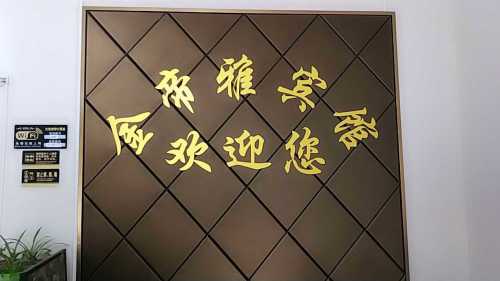 金帝雅宾馆
欢迎您
WiFi